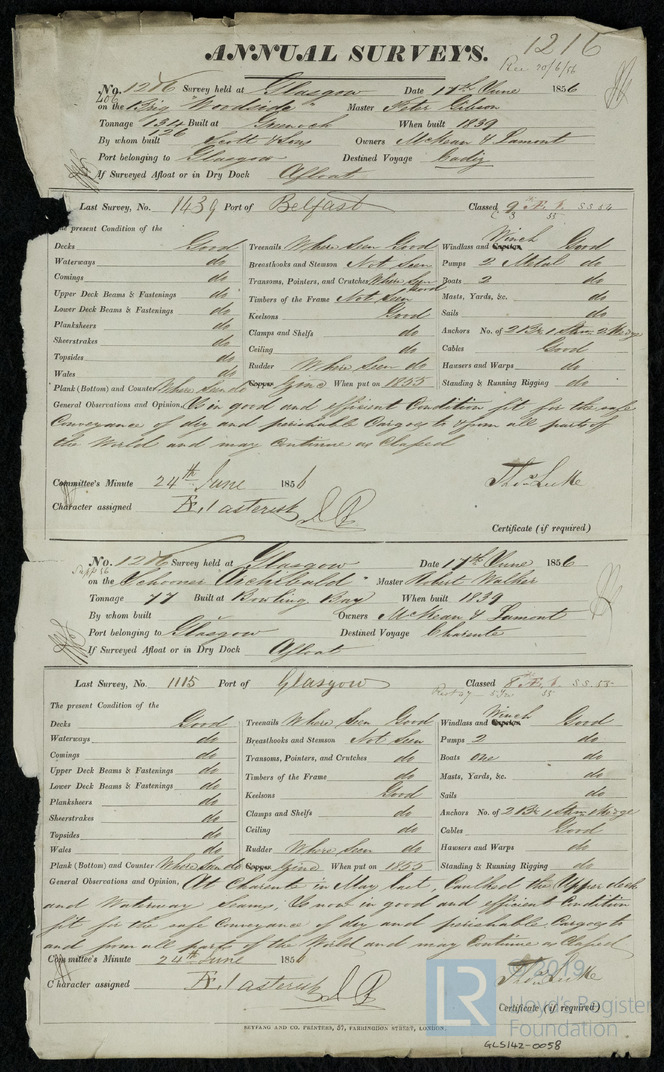 1216
ANNUAL SURVEYS.
Rec 20/6/56
No. 1216 Survey held at Glasgow Date 17th June 1856
on the Brig "Woodside" Master Peter Gibson
Tonnage 134 Built at Greenock When built 1839
126
By whom built Scott & Sons Owners McKean & Lamont
Port belonging to Glasgow Destined Voyage Cadiz
If Surveyed Afloat or in Dry Dock Afloat
Last Survey, No. 1439 Port of Belfast Classed
The present Condition of the
Decks Good Treenails Where Seen Good Windlass and Winch Good
Waterways do Breasthooks and Stemson Not Seen Pumps 2 Metal do
Comings do Transoms, Pointers, and Crutches Where Seen Good Boats 2 do
Upper Deck Beams & Fastenings do Timbers of the Frame Not Seen Masts, Yards, &c. do
Lower Deck Beams & Fastenings do Keelsons Good Sails do
Planksheers do Clamps and Shelfs do Anchors No. of 2 Br 1 Strm 2 Kedge
Sheerstrakes do Ceiling do Cables Good
Topsides do Rudder Where Seen do Hawsers and Warps do
Wales do Copper Zinc When put on 1855 Standing & Running Rigging do
Plank (Bottom) and Counter Where Seen do
General Observations and Opinion, Is in good and efficient Condition fit for the safe
Conveyance of dry and perishable Cargoes to & from all parts of
the World and may Continue as Classed
Committee's Minute 24th June 1856
Character assigned Æ 1 asterisk
Thos Luke
Certificate (if required)
No. 1216 Survey held at Glasgow Date 17th June 1856
on the Schooner "Archibald" Master Robert Walker
Tonnage 77 Built at Bowling Bay When built 1839
By whom built Owners McKean & Lamont
Port belonging to Glasgow Destined Voyage Charente
If Surveyed Afloat or in Dry Dock Afloat
Last Survey, No. 1115 Port of Glasgow Classed
The present Condition of the
Decks Good Treenails Where Seen Good Windlass and Winch Good
Waterways do Breasthooks and Stemson Not Seen Pumps 2 do
Comings do Transoms, Pointers, and Crutches do Boats one do
Upper Deck Beams & Fastenings do Timbers of the Frame do Masts, Yards, &c. do
Lower Deck Beams & Fastenings do Keelsons Good Sails do
Planksheers do Clamps and Shelfs do Anchors No. of 2 Br 1 Strm 1 Kedge
Sheerstrakes do Ceiling do Cables Good
Topsides do Rudder Where Seen do Hawsers and Warps do
Wales do Copper Zinc When put on 1855 Standing & Running Rigging do
Plank (Bottom) and Counter Where Seen do
General Observations and Opinion, At Charente in May last, Caulked the Upper deck
and Waterway Seams, Is now in good and efficient Condition
fit for the safe Conveyance of dry and perishable Cargoes to
and from all parts of the World and may Continue as Classed
Committee's Minute 24th June 1856
Character assigned Æ 1 asterisk
Thos Luke
Certificate (if required)
SEYFANG AND CO. PRINTERS, 57, FARRINGDON STREET, LONDON.
LR
© 2019
Lloyd's Register
Foundation
GLS142-0058